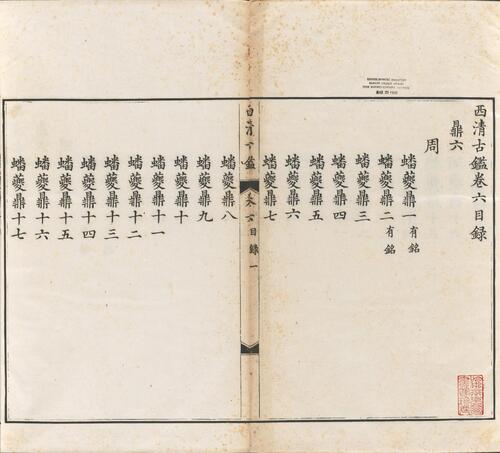 西清古鑑卷六目録
鼎六
周
蟠夔鼎一 有銘
蟠夔鼎二 有銘
蟠夔鼎三
蟠夔鼎四
蟠夔鼎五
蟠夔鼎六
蟠夔鼎七
西清古鑑 卷六目録 一
蟠夔鼎八
蟠夔鼎九
蟠夔鼎十
蟠夔鼎十一
蟠夔鼎十二
蟠夔鼎十三
蟠夔鼎十四
蟠夔鼎十五
蟠夔鼎十六
蟠夔鼎十七